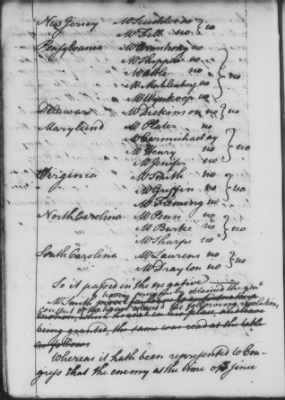 New Jersey Mr Scudder no } no
Mr Fell no
Pensylvania Mr Armstrong no
Mr Shippen no
Mr Atlee no } no
Mr Muhlenburg no
Mr Wynkoop no
Delaware Mr Dickinson no } no
Maryland Mr Plater no
Mr Carmichael ay } no
Mr Henry no
Mr Jenifer no
Virginia Mr Smith no
Mr Griffin no } no
Mr Fleming no
North Carolina Mr Penn no
Mr Burke no } no
Mr Sharpe no
South Carolina Mr Laurens no } no
Mr Drayton no
So it passed in the negative
having previously obtained the
Mr Smith moved
consent of the house moved the following resolution,
being granted, the same was read at the table
as follows
Whereas it hath been represented to Con-
gress that the enemy at the time of & since